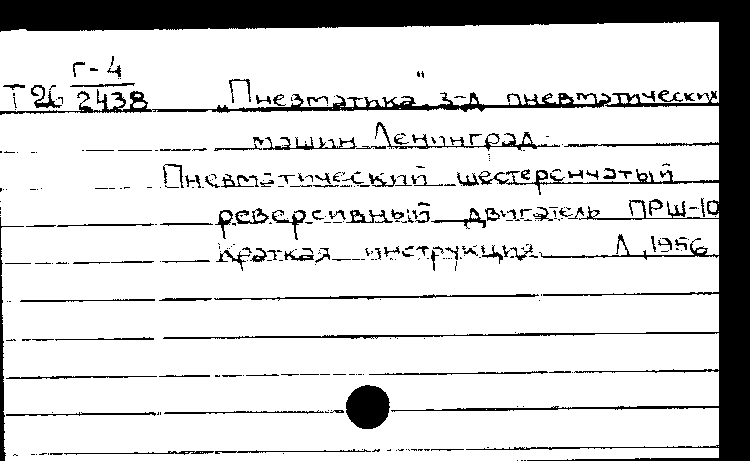 Г-4
Т26 2438 „Пневматика“ з-д пневматических
машин Ленинград.
Пневматический шестеренчатый
реверсивный двигатель ПРШ-10
Краткая инструкция. Л, 1956